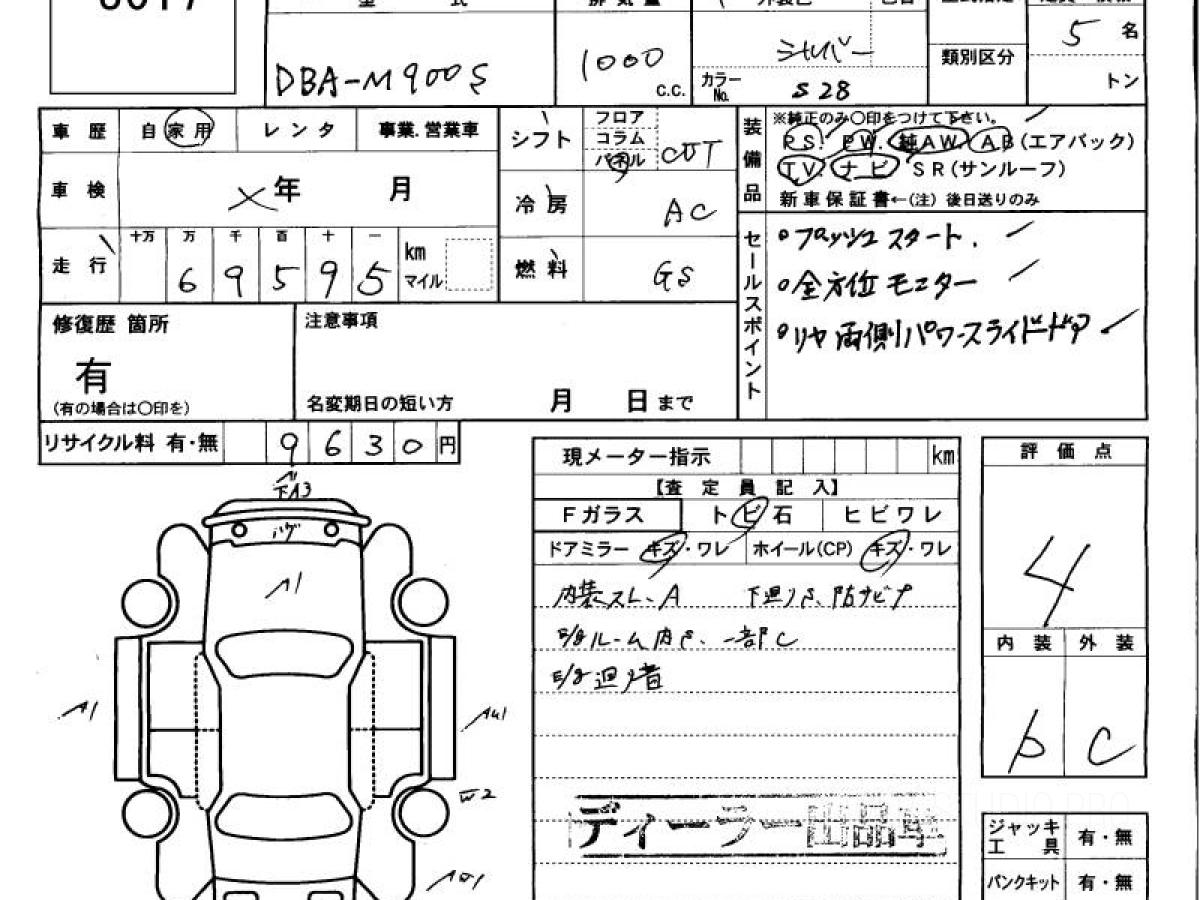 DBA-M900S
1000
c.c.
シルバー
カラー
No.
S28
類別区分
5 名
トン
車歴 自家用 レンタ 事業.営業車
シフト
フロア
コラム
パネル
CVT
装備品
※純正のみ〇印をつけて下さい。
PS. PW. 純AW. AB(エアバック)
TV. ナビ SR(サンルーフ)
新車保証書←(注)後日送りのみ
車検 年 月
冷房 AC
走行
十万 万 千 百 十 一
69595
km
マイル
燃料 GS
セールスポイント
・プッシュスタート.
・全方位モニター
・リヤ両側パワースライドドア
修復歴 箇所
有
(有の場合は〇印を)
注意事項
名変期日の短い方 月 日まで
リサイクル料 有・無 9630円
現メーター指示 km
【査定員記入】
Fガラス トビ石 ヒビワレ
ドアミラー キズ・ワレ ホイール(CP) キズ・ワレ
内装スレ、A
E/gルーム内S、一部C
評価点
4
内装 外装
b C
下A3
A1
A1
AU1
W2
ディーラー出品車
ジャッキ
工具
有・無
パンクキット 有・無